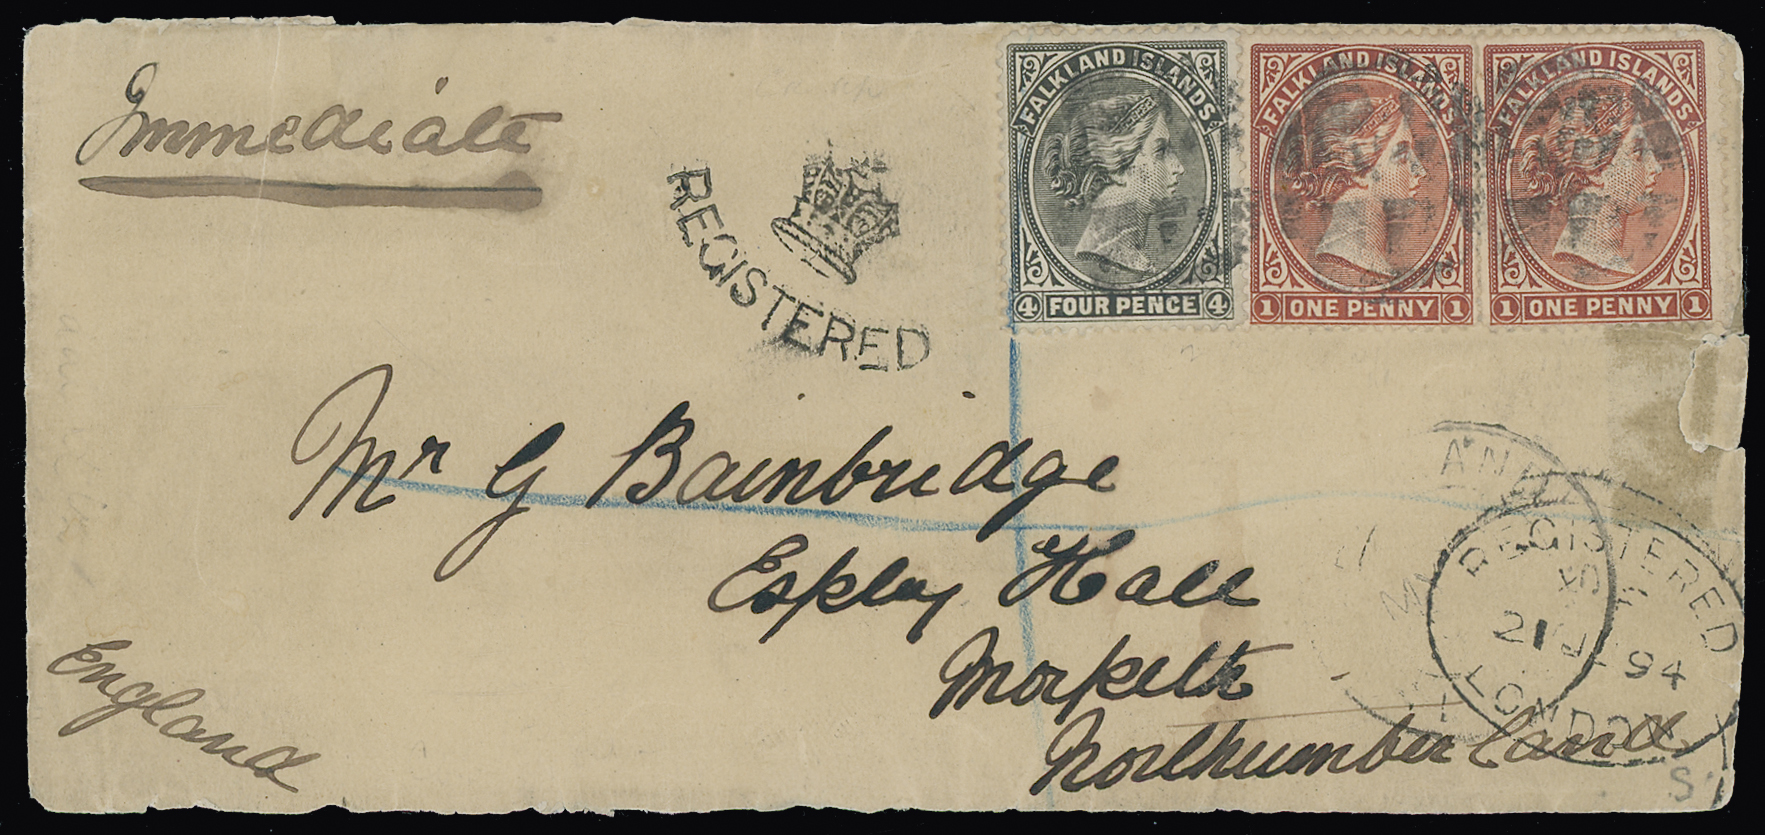 Immediate
FALKLAND ISLANDS
4 FOUR PENCE 4
FALKLAND ISLANDS
1 ONE PENNY 1
FALKLAND ISLANDS
1 ONE PENNY 1
REGISTERED
Mr G Bainbridge
Espley Hall
Morpeth
Northumberland
England
REGISTERED
21 JL 94
LONDON